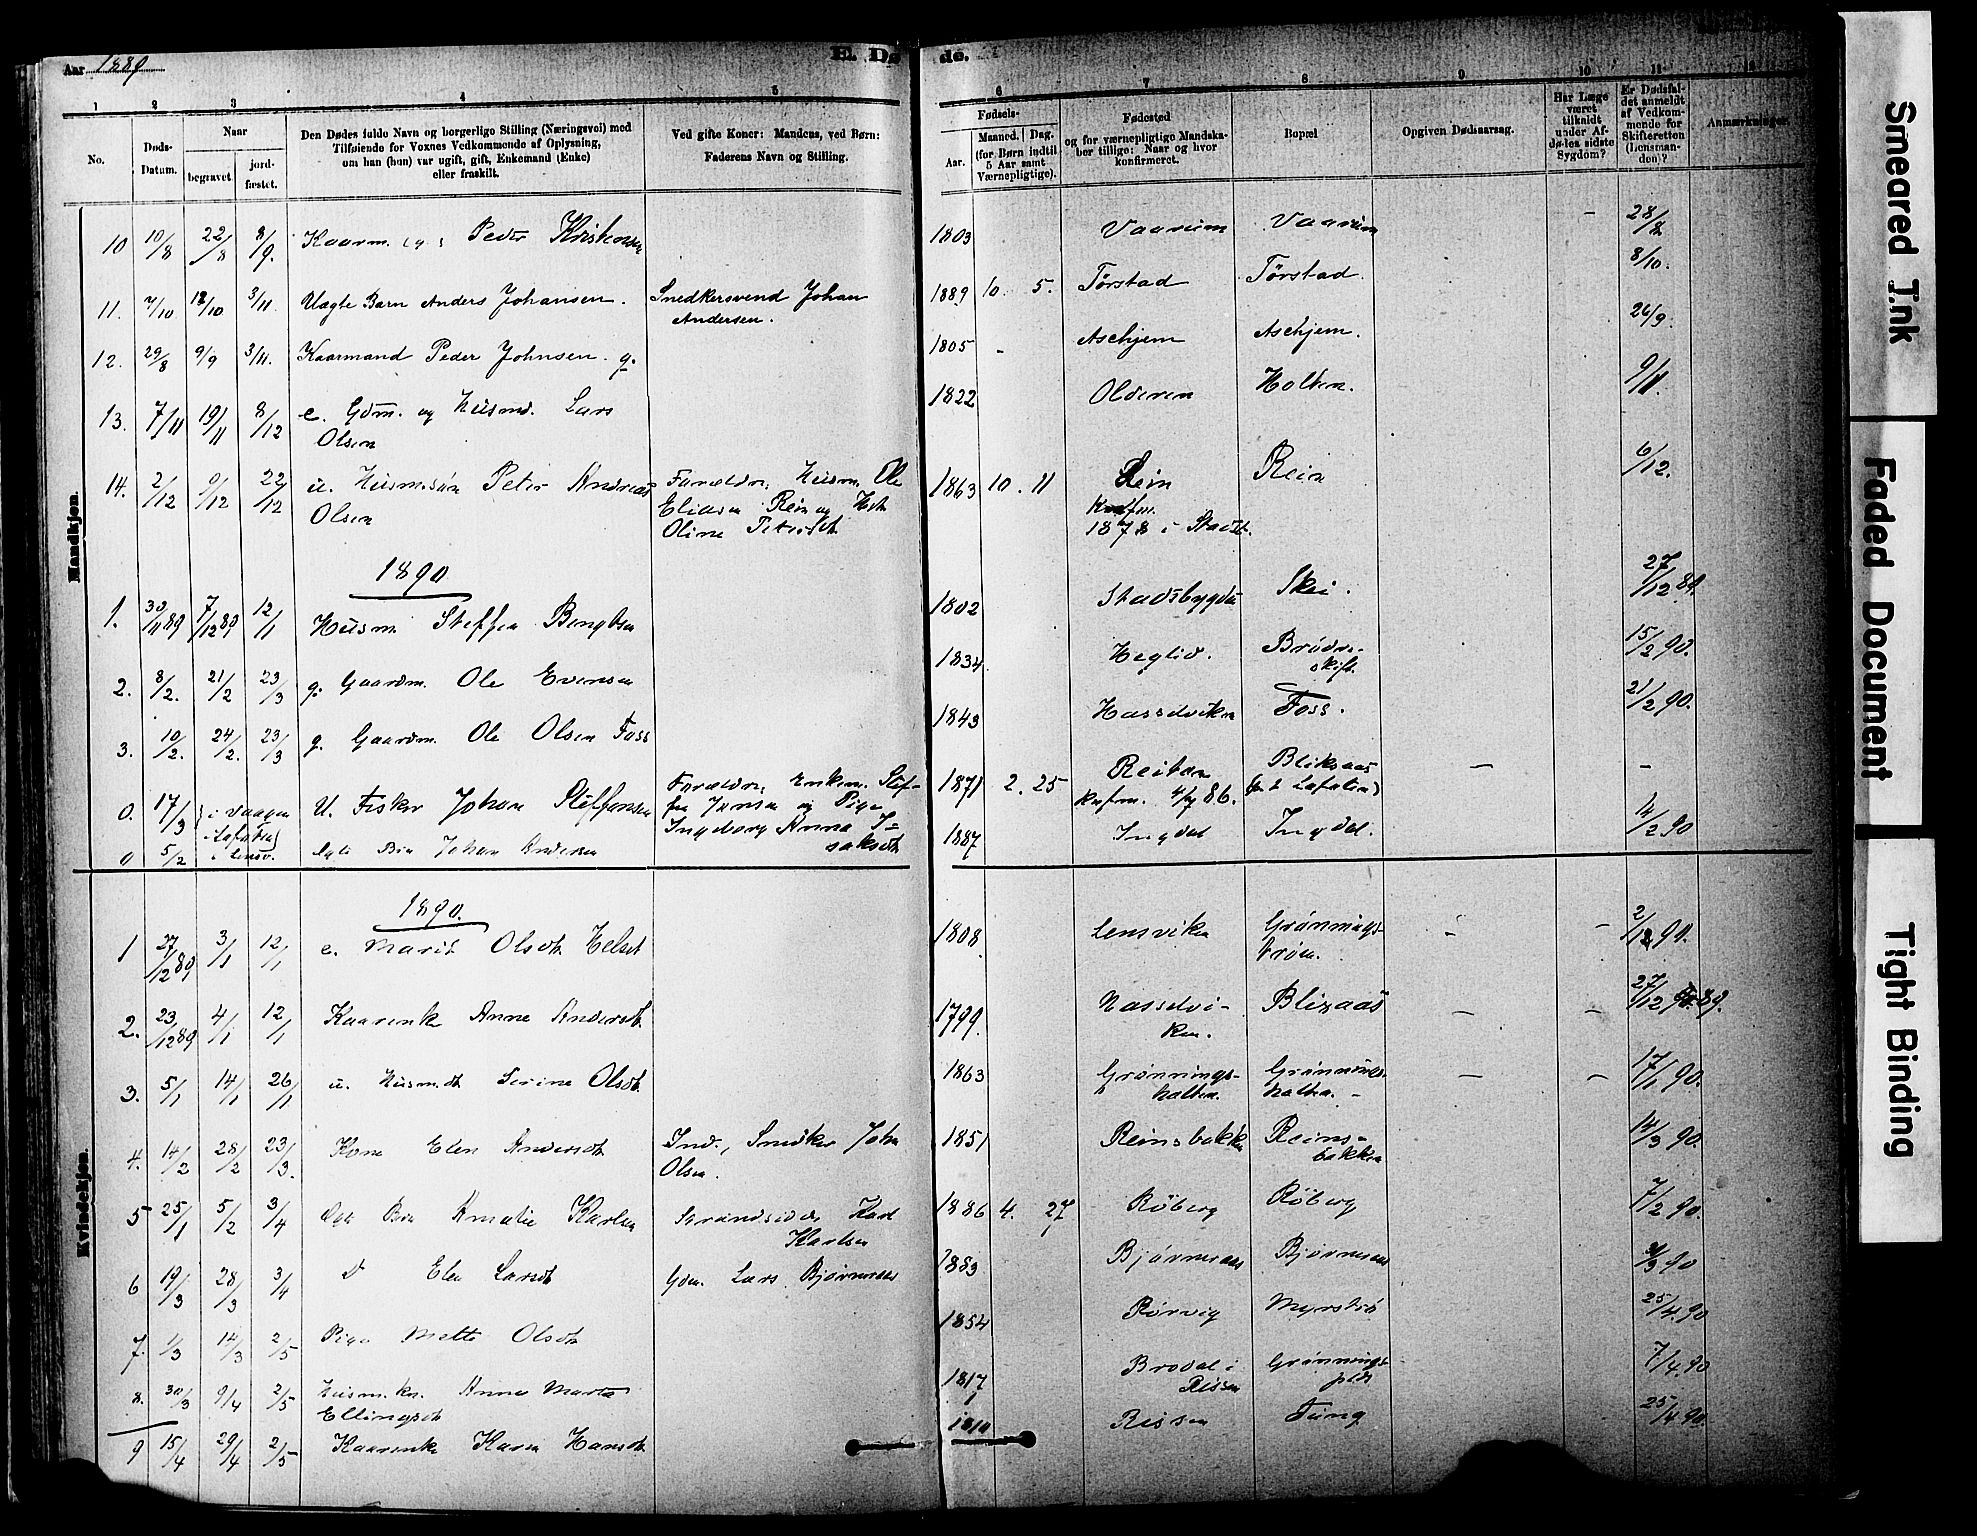 Aar 1889
E. Dø
de.
1 2 3 4 5 6 7 8 9 10 11 12
No.
Døds-
Datum.
Naar
begravet.
jord-
fæstet.
Den Dødes fulde Navn og borgerlige Stilling (Næringsvei) med
Tilføiende for Voxnes Vedkommende af Oplysning,
om han (hun) var ugift, gift, Enkemand (Enke)
eller fraskilt.
Ved gifte Koner: Mandens, ved Børn:
Faderens Navn og Stilling.
Fødsels-
Aar.
Maaned. Dag.
(for Børn indtil
5 Aar samt
Værnepligtige).
Fødested
og for værnepligtige Mandska-
ber tillige: Naar og hvor
konfirmeret.
Bopæl.
Opgiven Dødsaarsag.
Har Læge
været
tilkaldt
under Af-
dødes sidste
Sygdom?
Er Dødsfal-
det anmeldt
af Vedkom-
mende for
Skifteretten
(Lensman-
den)?
Anmærkninger.
Mandkjøn.
10 10/8 22/8 8/9 Kaarm. Peder Kristensen 1803 Vaarum Vaarum - 28/8
11. 7/10 12/10 3/11 Uægte Barn Anders Johansen. Snedkersvend Johan
Andersen. 1889 10. 5. Tørstad Tørstad. 8/10.
12. 29/8 9/9 3/11. Kaarmand Peder Johnsen. g. 1805 - Aschjem Aschjem. 26/9.
13. 7/11 19/11 8/12 e. Gdm. og Husmd. Lars
Olsen 1822 Olderen Holten. 9/11.
14. 2/12 9/12 22/12 u. Husm.søn Peter Andreas
Olsen Forældre, Husm. Ole
Eliasen Rein og
Oline Petersdt 1863 10. 11 Rein
Konfm.
1878 i Stadsb. Rein 6/12.
1890
1. 30/11 89 7/12 89 12/1 Husm. Steffen Bengtsen 1802 Stadsbygden Skei. 27/12 89
2. 8/2. 21/2 23/3 g. Gaardm. Ole Evensen 1834. Heglid. Brødre-
skift. 15/2 90.
3. 10/2. 24/2. 23/3 g. Gaardm. Ole Olsen Foss 1843 Hassdviken Foss. 21/2 90.
0. 17/3 i Vaagen
i Lofoten U. Fisker Johan Steffensen Forældre, Enkem. Stef-
fen Jensen og Pige
Ingeborg Anna I-
saksdt 1871 2. 25 Reitan
knfm. 86. Bliksaas
Lofoten) - -
0 5/2 i Lensv. Johan Andersen 1887 Ingdal Ingdal. 14/2 90
Kvindekjøn.
1890.
1 27/12 89 3/1 12/1 e. Marit Olsdt Helset 1808. Lensviken Grønnings-
trøen. - - 2/12 90.
2. 23/12 89 4/1 12/1 Kaarenke Anne Andersdt. 1799. Hasselvi-
ken. Blixaas - - 27/12 89.
3. 5/1 14/1 26/1 u. Husm.dt Serine Olsdt. 1863 Grønnings-
halten. Grønnings-
halten. - - 17/1 90.
4. 14/2 28/2 23/3. Kone Elen Andersdt Ind., Snedker John
Olsen. 1851 Reinsbakken Reins-
bakken 14/3 90.
5 25/1 5/2 3/4 Amalie Karlsen Strandsidder Karl
Karlsen 1886 4. 27 Røberg Røberg 7/2 90.
6 19/3 28/3 3/4 Elen Larsdt Gdm. Lars Bjørneraas 1883 Bjørneraas Bjørneraas 90
7. 1/3 14/3 2/5 Pige Mette Olsdt 1854 Rørvig 25/4. 90
8. 30/3 9/4 2/5 Husm.kn. Anne Marta
Ellingsdt 1817 Brodal i
Rissen Grønnings
plds 7/4. 90
9 15/4 29/4 2/5 Kaarenke Karen Hansdt Rissen Tung 25/4 90.
Smeared Ink
Faded Document
Tight Binding